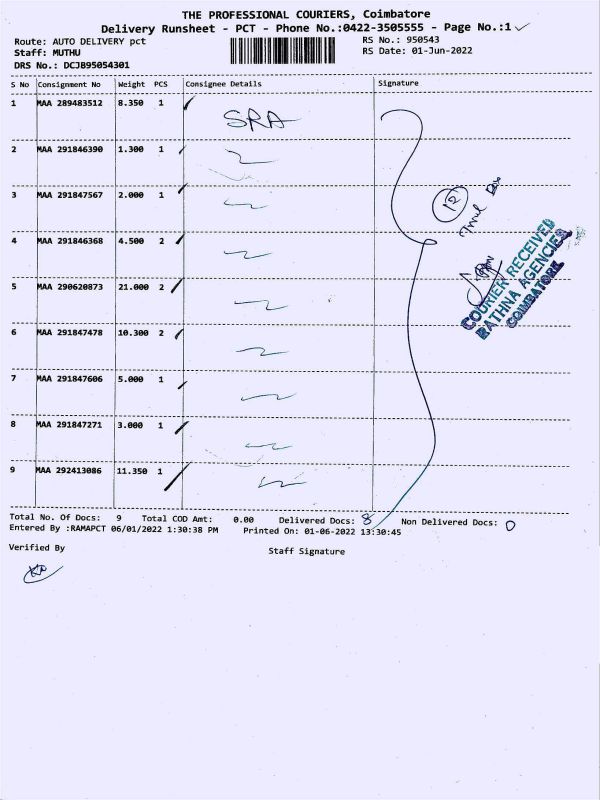 THE PROFESSIONAL COURIERS, Coimbatore
Delivery Runsheet - PCT - Phone No.:0422-3505555 - Page No.:1
Route: AUTO DELIVERY pct
RS No.: 950543
Staff: MUTHU
RS Date: 01-Jun-2022
DRS No.: DCJB95054301
S No Consignment No Weight PCS Consignee Details Signature
1 MAA 289483512 8.350 1 SRA
2 MAA 291846390 1.300 1
3 MAA 291847567 2.000 1
4 MAA 291846368 4.500 2
5 MAA 290620873 21.000 2
6 MAA 291847478 10.300 2
7 MAA 291847606 5.000 1
8 MAA 291847271 3.000 1
9 MAA 292413086 11.350 1
12
COURIER RECEIVED
RATHNA AGENCIES
COIMBATORE
Total No. Of Docs: 9 Total COD Amt: 0.00 Delivered Docs: 8 Non Delivered Docs: 0
Entered By :RAMAPCT 06/01/2022 1:30:38 PM Printed On: 01-06-2022 13:30:45
Verified By Staff Signature